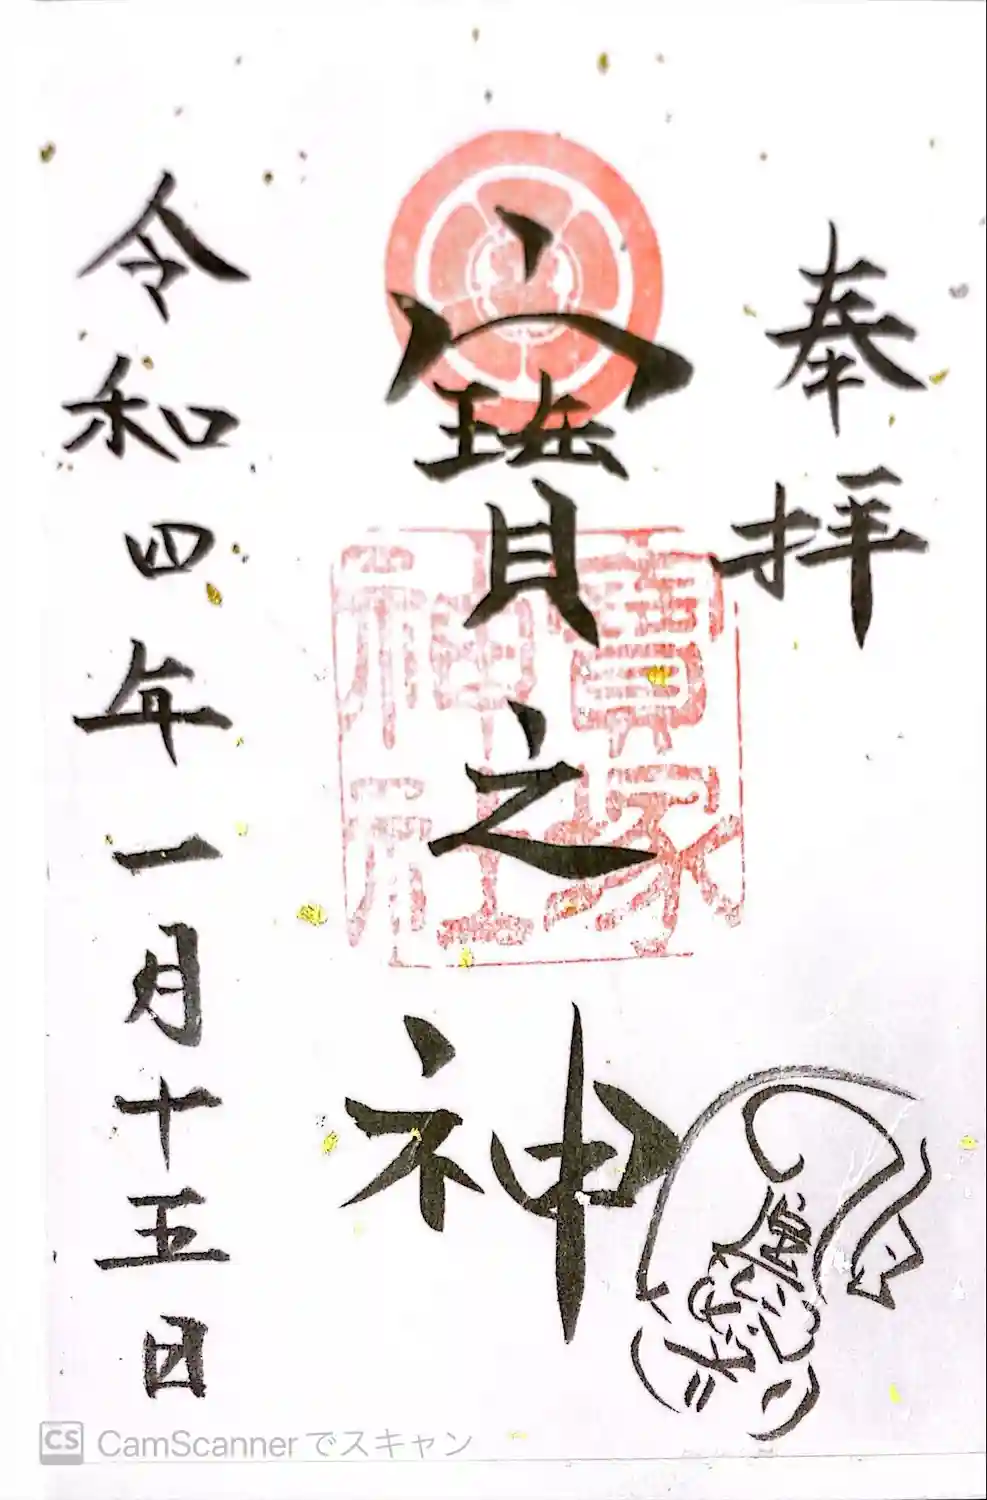 奉拝
寳之神
寳家神社
令和四年一月十五日
CS CamScannerでスキャン